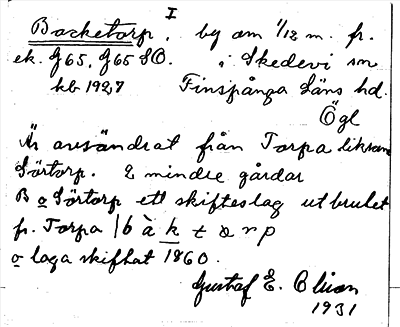 I
Backetorp, by om 1/12 m. fr.
ek. J65, J65 SO. i Skedevi sn
kb 1927 Finspånga Läns hd.
Ögl
Är avsöndrat från Torpa liksom
Sörtorp. 2 mindre gårdar
B o Sörtorp ett skifteslag utbrutet
fr. Torpa | b à k t o r p
o laga skiftat 1860.
Gustaf E.
1931